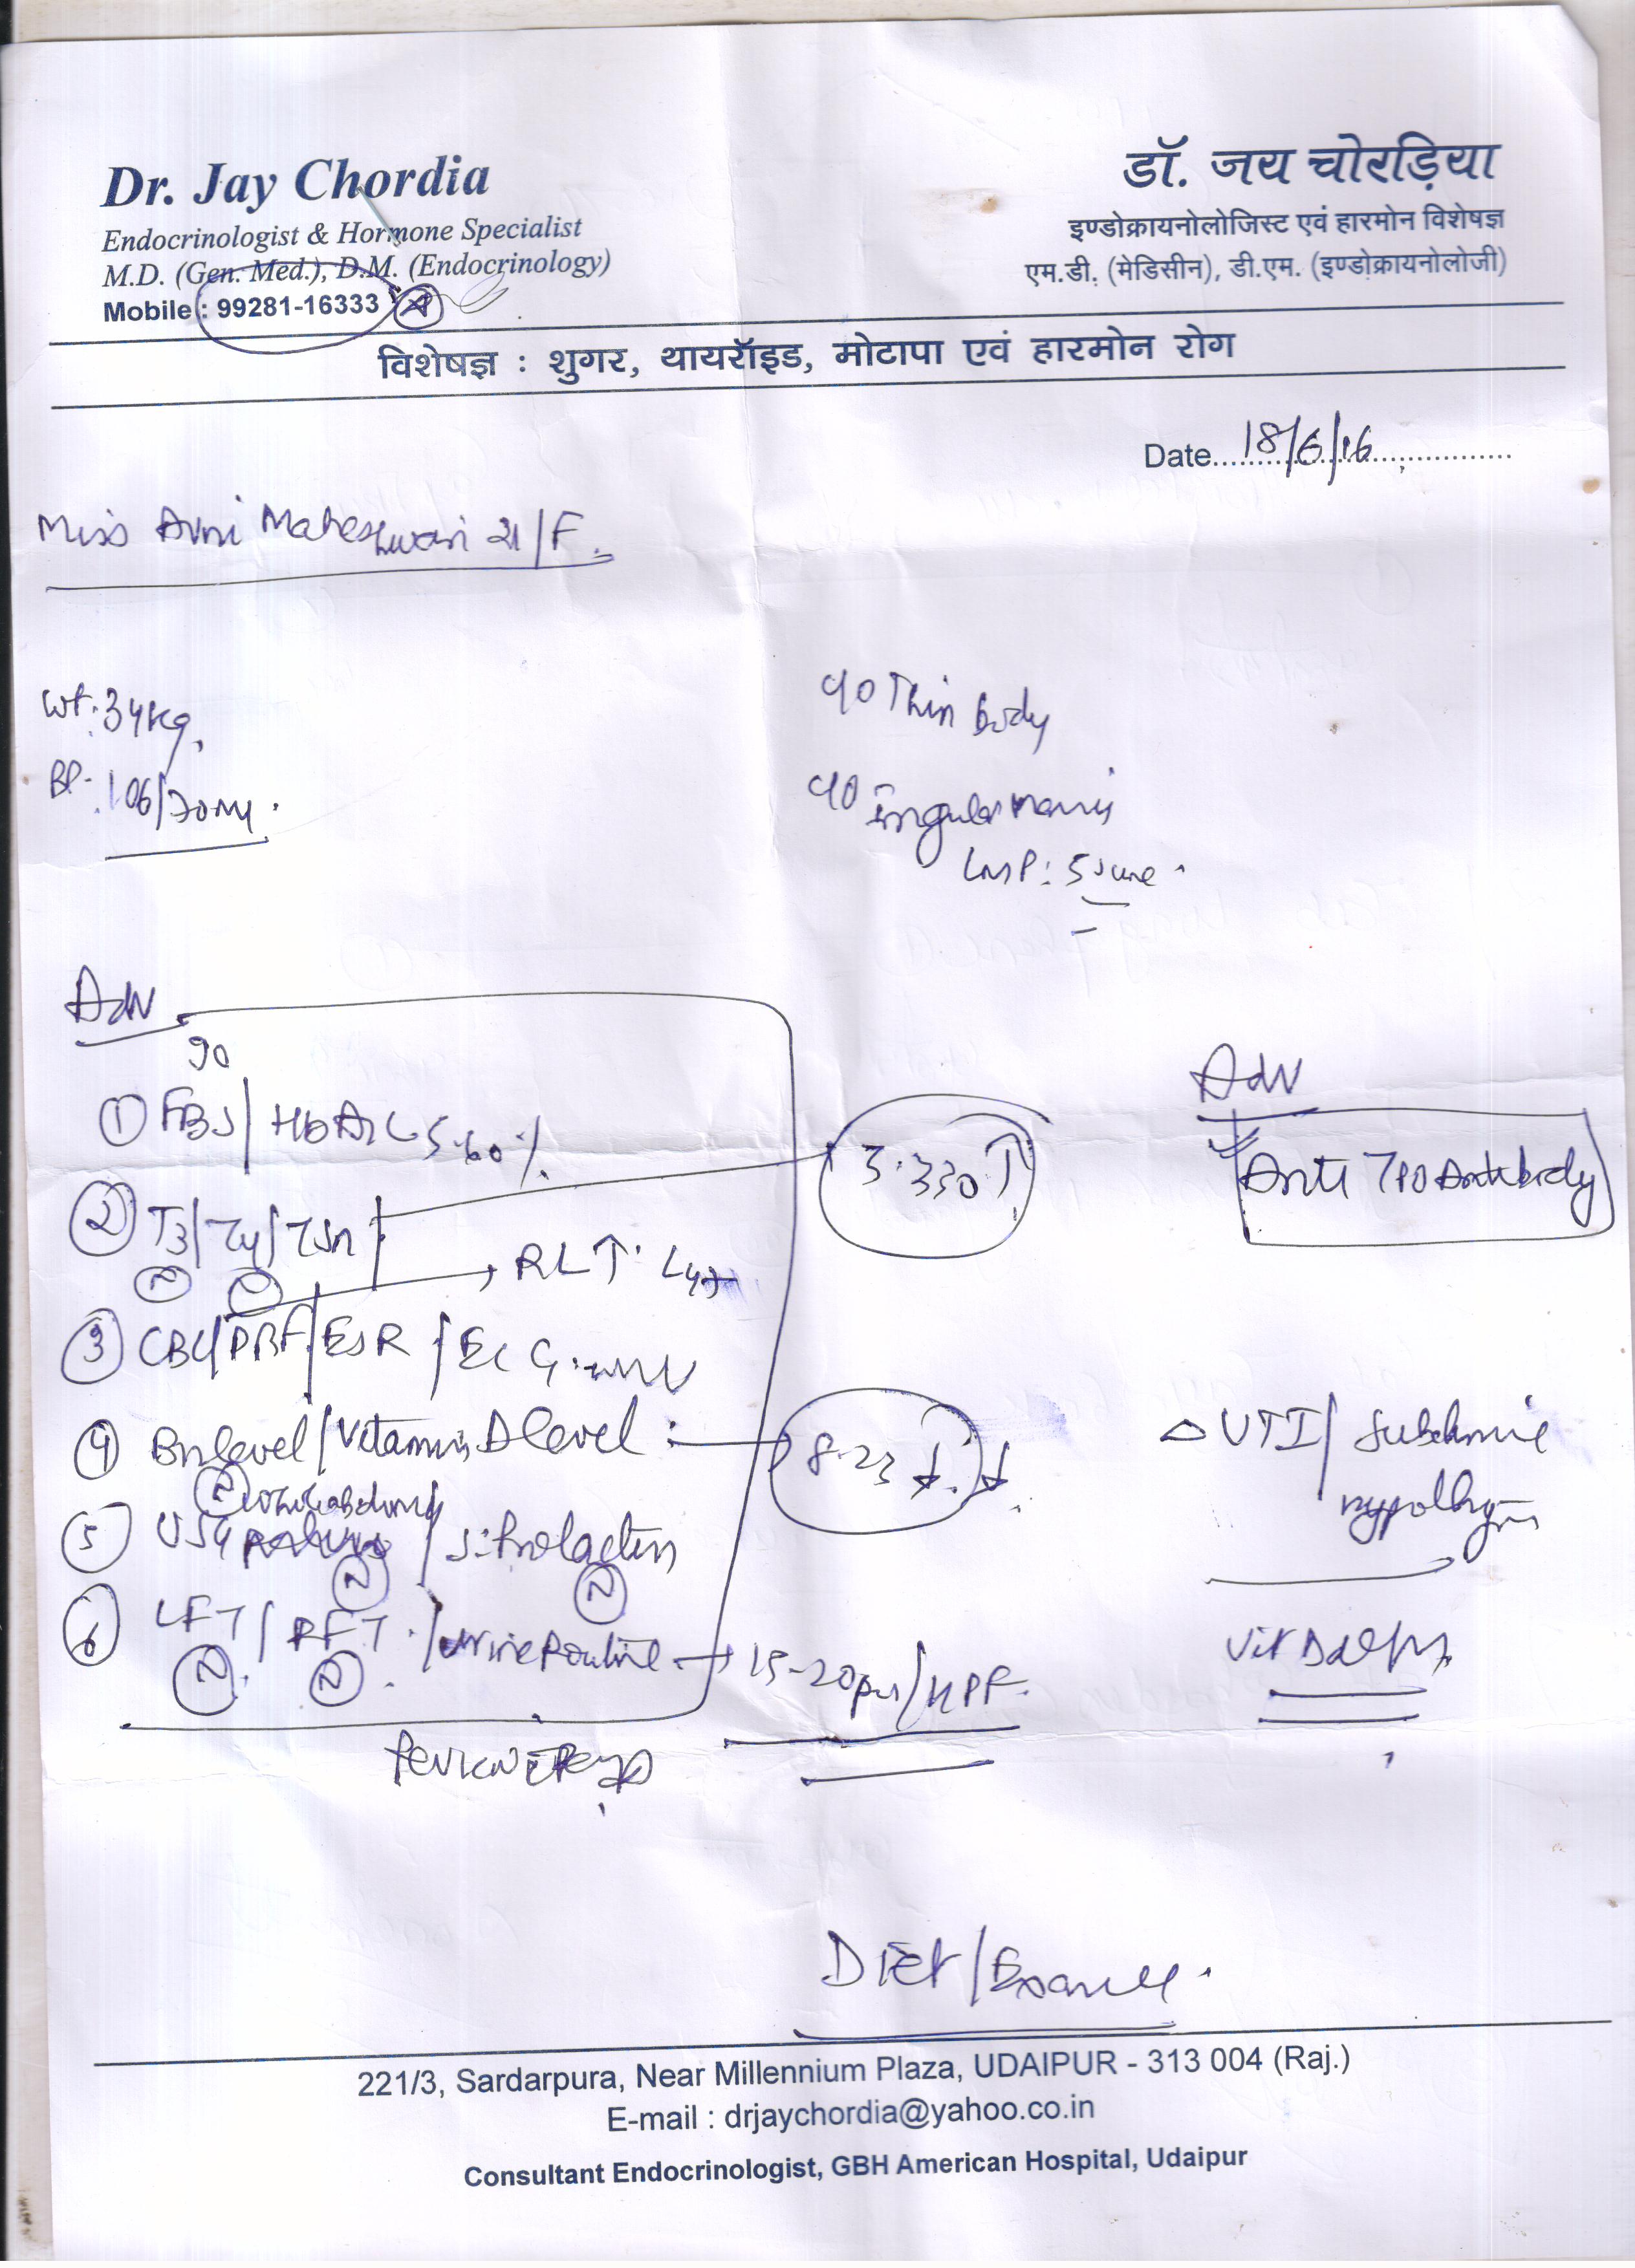 Dr. Jay Chordia
Endocrinologist & Hormone Specialist
M.D. (Gen. Med.), D.M. (Endocrinology)
Mobile : 99281-16333
डॉ. जय चोरड़िया
इण्डोक्रायनोलोजिस्ट एवं हारमोन विशेषज्ञ
एम.डी. (मेडिसीन), डी.एम. (इण्डोक्रायनोलोजी)
विशेषज्ञ : शुगर, थायरॉइड, मोटापा एवं हारमोन रोग
Date 18/6/16
Miss Avni Maheshwari 21/F.
Wt: 34kg.
BP: 106/70
c/o Thin Body
c/o
LMP: 5 June
Adv
90
① FBS/ HbA1c 5.60%
② T3/T4/TSH
N N
5.330 ↑
RLT
③ CBC/PBF/ESR/ECG
④ B12 level/Vitamin D level
N
8.23 ↓ ↓
⑤ USG whole abdomen / S. Prolactin
N N
⑥ LFT/RFT/Urine Routine → 15-20 pus/HPF
N N
Review
Adv
Anti TPO Antibody
△ UTI/
Vit D
Diet/
221/3, Sardarpura, Near Millennium Plaza, UDAIPUR - 313 004 (Raj.)
E-mail : drjaychordia@yahoo.co.in
Consultant Endocrinologist, GBH American Hospital, Udaipur